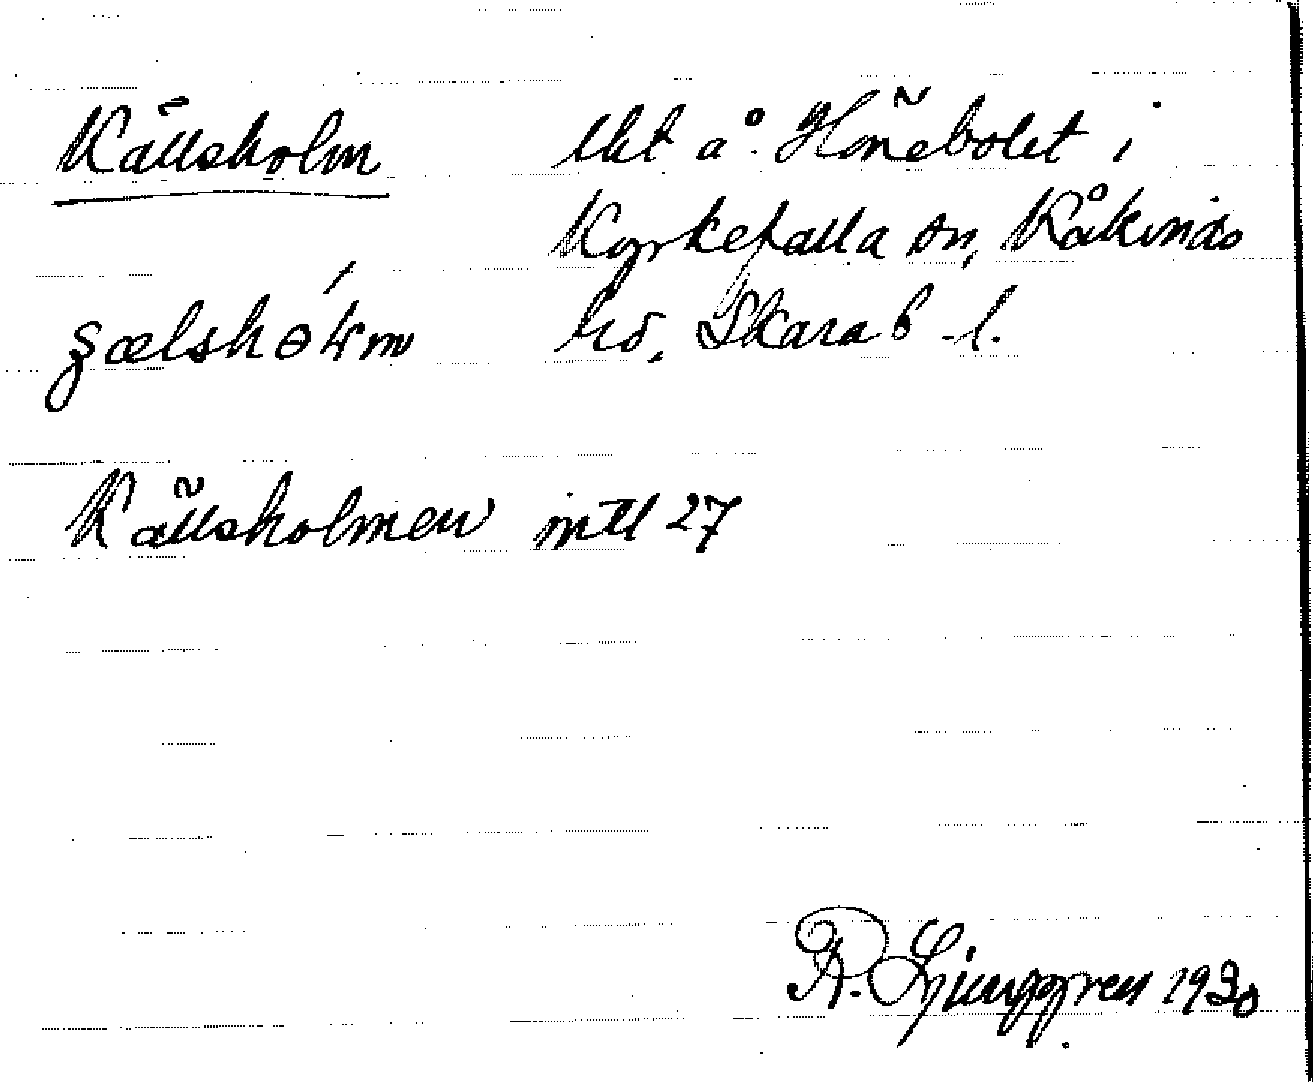 Källsholm lht å Hönebolet i
Kyrkefalla sn, Kåkinds
hd, Skarab. l.
Källsholmen mtl 27
R. Ljunggren 1930